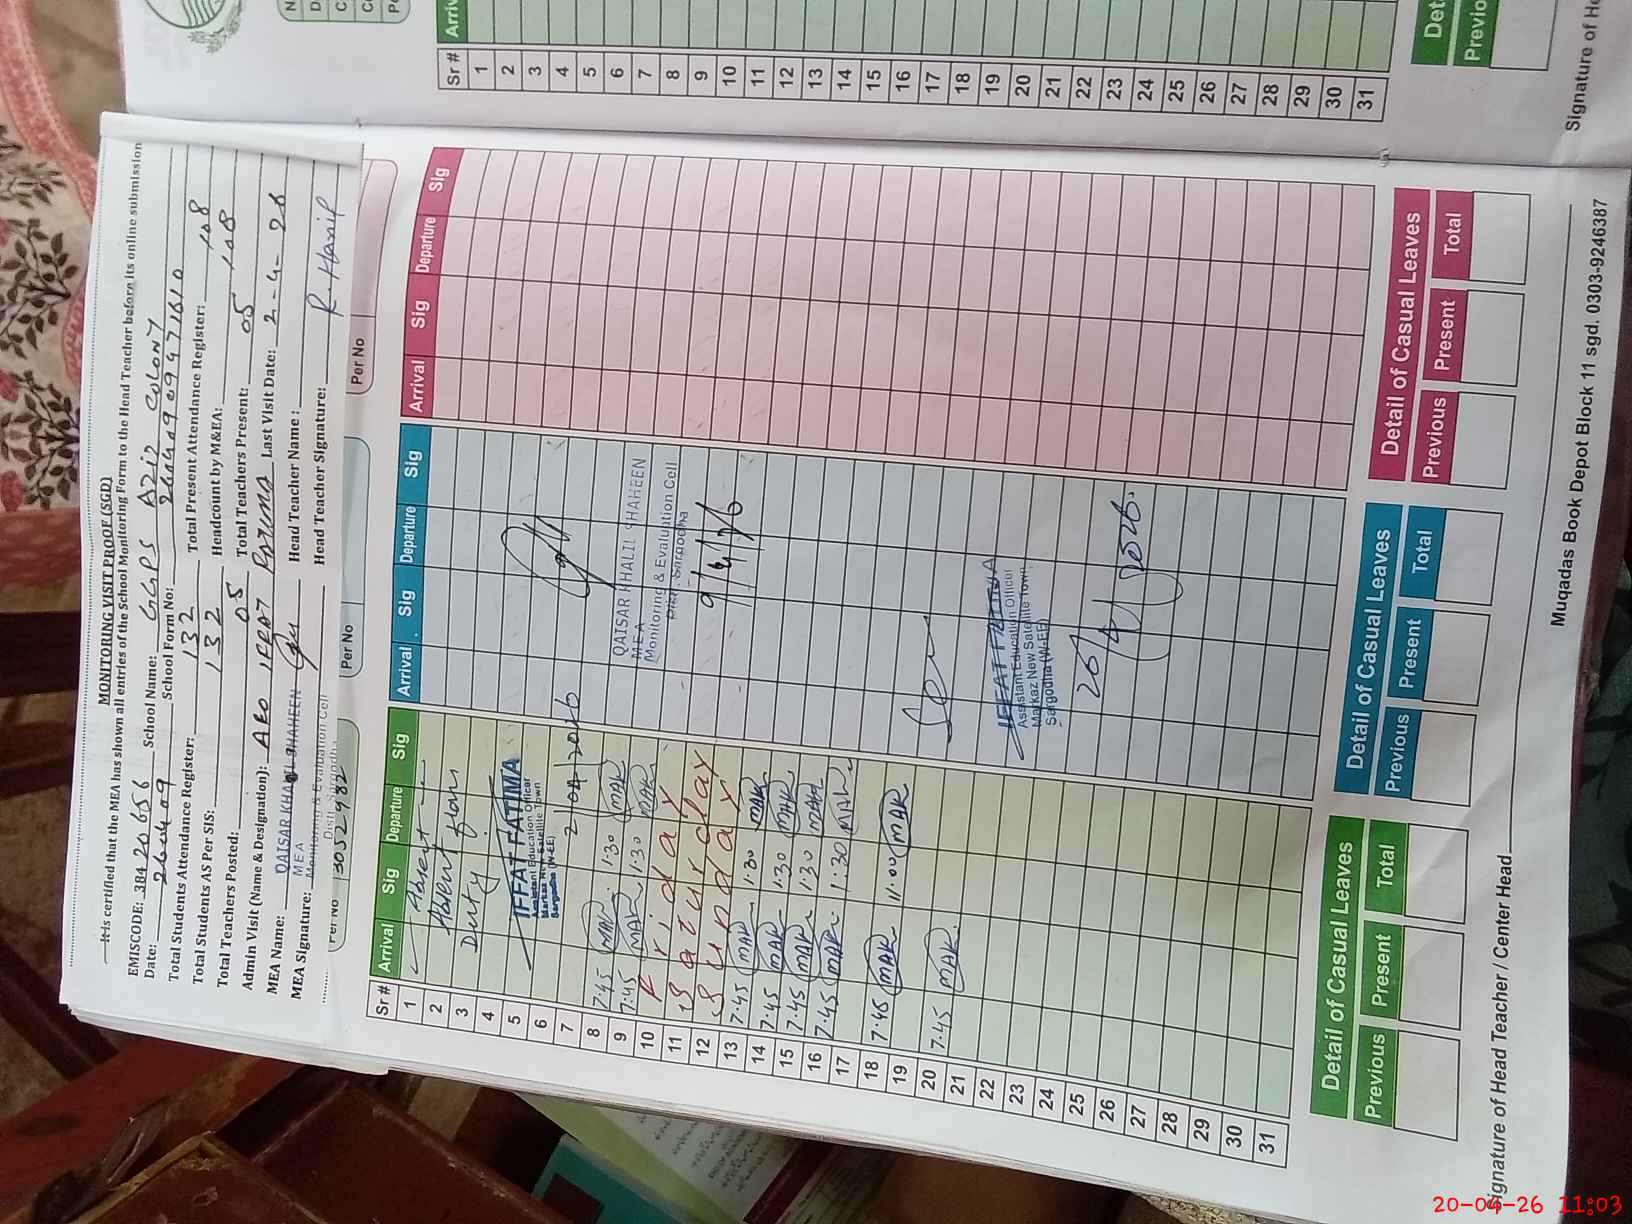 MONITORING VISIT PROOF (SGD)
It is certified that the MEA has shown all entries of the School Monitoring Form to the Head Teacher before its online submission
EMISCODE: 38420656 School Name: GGPS AZIZ COLONY
Date: School Form No:
Total Students Attendance Register: 132 Total Present Attendance Register: 108
Total Students AS Per SIS: 132 Headcount by M&EA: 108
Total Teachers Posted: 05 Total Teachers Present: 05
Admin Visit (Name & Designation): AEO IFFAT FATIMA Last Visit Date: 2-4-26
MEA Name: QAISAR KHALIL SHAHEEN Head Teacher Name:
MEA
MEA Signature: Monitoring & Evaluation Cell Head Teacher Signature: R. Hanif
Distt: Sargodha
Per No Per No Per No
Sr # Arrival Sig Departure Sig Arrival Sig Departure Sig Arrival Sig Departure Sig
1 Absent
2 Absent from
3 Duty
4
5 IFFAT FATIMA
Assistant Education Officer
Markaz New Satellite Town
Sargodha (W-EE)
6
7 2/04/2026
8 7:45 MAK 1:30 MAK
9 7:45 MAK 1:30 MAK
QAISAR KHALIL SHAHEEN
MEA
Monitoring & Evaluation Cell
Distt: Sargodha
9/4/26
10 Friday
11 Saturday
12 Sunday
13 7:45 MAK 1:30 MAK
14 7:45 MAK 1:30 MAK
15 7:45 MAK 1:30 MAK
16 7:45 MAK 1:30 MAK
17
18 7:45 MAK 11:00 MAK
19
20 7:45 MAK
21
22
IFFAT FATIMA
Assistant Education Officer
Markaz New Satellite Town
Sargodha (W-EE)
23
24
25
20/4/2026.
26
27
28
29
30
31
Detail of Casual Leaves Detail of Casual Leaves Detail of Casual Leaves
Previous Present Total Previous Present Total Previous Present Total
Signature of Head Teacher / Center Head
Muqadas Book Depot Block 11 sgd. 0303-9246387
Sr #
1
2
3
4
5
6
7
8
9
10
11
12
13
14
15
16
17
18
19
20
21
22
23
24
25
26
27
28
29
30
31
20-04-26 11:03